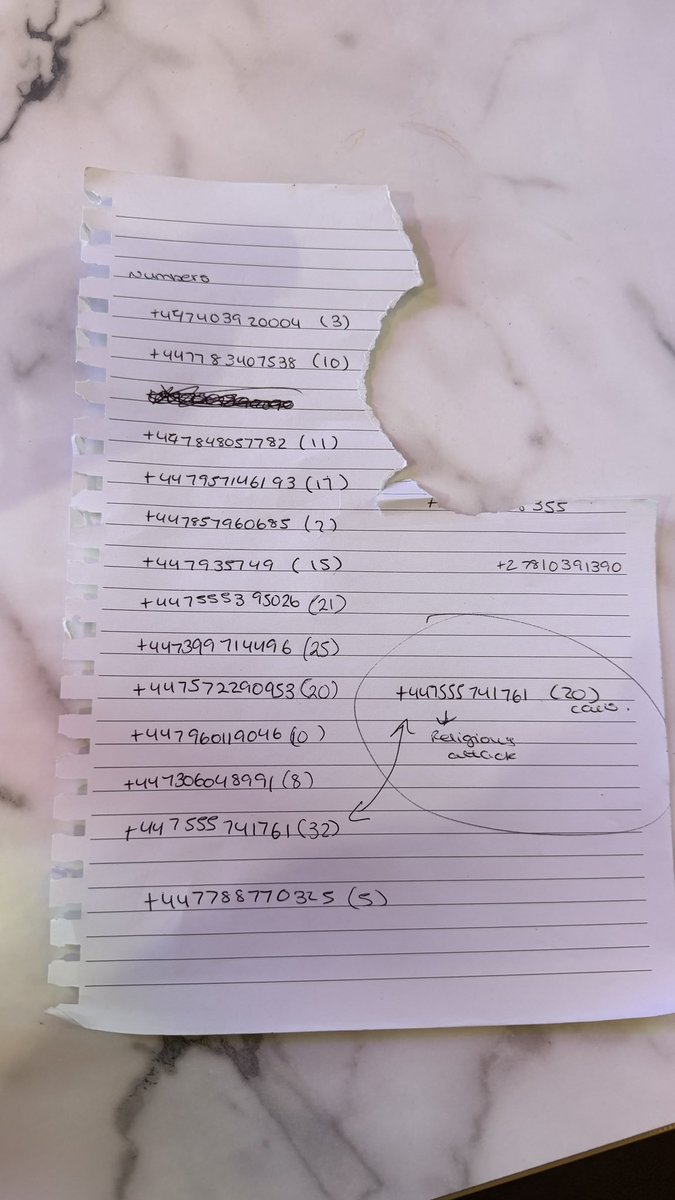 Numbers
+447403920004 (3)
+447783407538 (10)
+447848057782 (11)
+447957146193 (17)
+447857960685 (2)
355
+447935749 (15)
+27810391390
+447555395026 (21)
+447399714496 (25)
+447572290953 (20)
+447555741761 (20)
calls.
Religious
attack
+447960119046 (0)
+447306048991 (8)
+447555741761 (32)
+447788770325 (5)